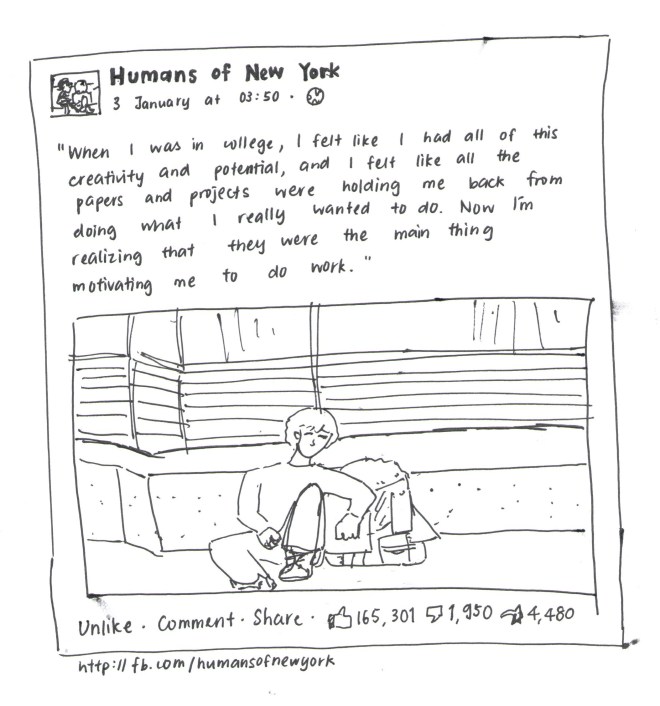 Humans of New York
3 January at 03:50 ·
"When I was in college, I felt like I had all of this
creativity and potential, and I felt like all the
papers and projects were holding me back from
doing what I really wanted to do. Now I'm
realizing that they were the main thing
motivating me to do work."
Unlike · Comment · Share · 165,301 1,950 4,480
http://fb.com/humansofnewyork